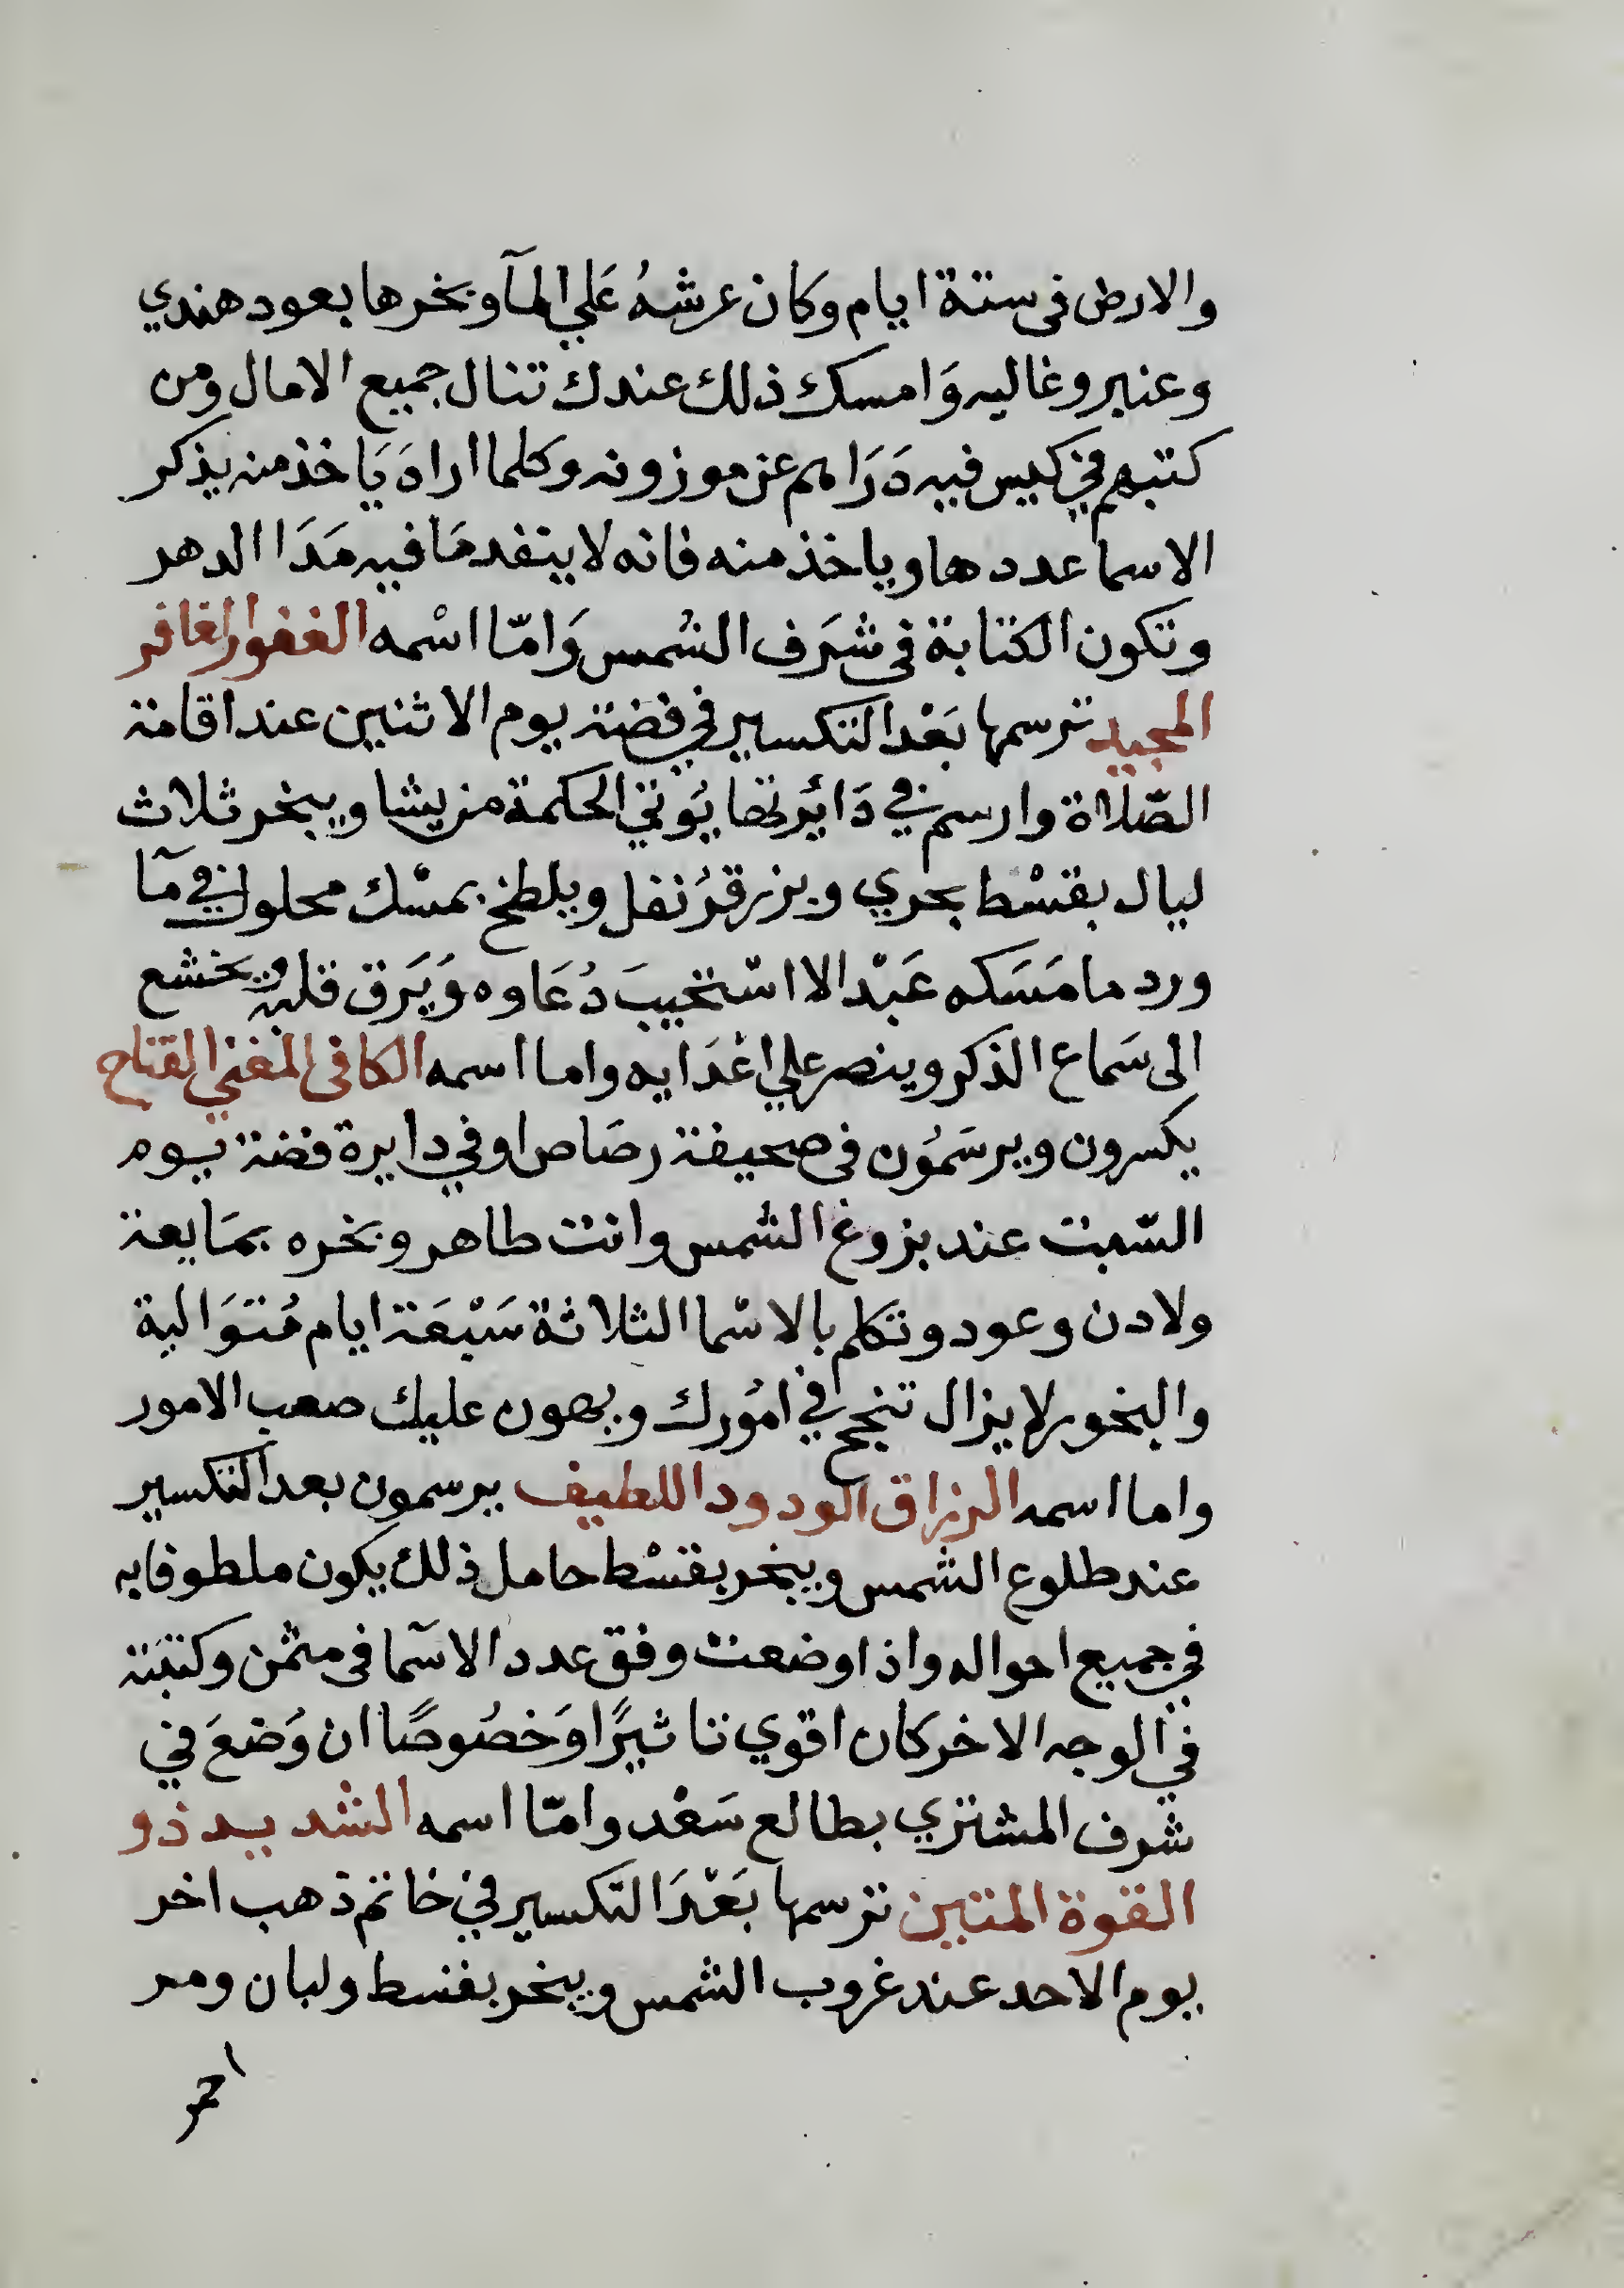 والارض فى ستة ايام وكان عرشهُ عَلي المآ وبخرها بعود هندي
وعنبر وغاليه وَامسك ذلك عندك تنال جميع الامال ومن
كتبهم في كيس فيه دَرَاهم غز موزونه وكلما ارادَ يَاخذ منه يذكر
الاسما عددها وياخذ منه فانه لا ينفد مَا فيه مَدَا الدهر
وتكون الكتابة فى شرَف الشمس وَامّا اسْمه الغفور الغافر
المجيد ترسمها بَعْد التكسير في فضة يوم الاثنين عند اقامة
الصّلاة وارسم في دَائرتها يُوتي الحكمة من يشا ويبخر ثلاث
ليال بقسْط بحري وبزر قرُنفل ويلطخ بمسْك محلول في مآ
ورد ما مَسَكه عَبْد الا اسْتجيبَ دُعَاوه وَيَرق قلبه ويخشع
الى سَماع الذكر وينصر علي اعْدَايه واما اسمه الكافى المغني الفتاح
يكسرون ويرسَمُون فى صحيفة رصَاص او في دايرة فضة يوم
السّبت عند بزوغ الشمس وانت طاهر وبخره بمَايعة
ولادن وعود وتكلم بالاسْما الثلاثة سَبْعَة ايام مُتوَالية
والبخور لا يزال تنجح في امُورك ويهون عليك صعب الامور
واما اسمه الرزاق الودود اللطيف يرسمون بعد التكسير
عند طلوع الشمس ويبخر بقسْط حامل ذلك يكون ملطوفا به
في جميع احواله واذا وضعت وفق عدد الاسّما فى مثمن وكتبته
في الوجه الاخر كان اقوي تاثيرًا وَخصُوصًا ان وَضعَ في
شرف المشتري بطالع سَعْد وامّا اسمه الشديد ذو
القوة المتين ترسمها بَعْدَ التكسير في خاتم ذهب اخر
يوم الاحد عند غروب الشمس ويبخر بقسط ولبان ومر
احمر